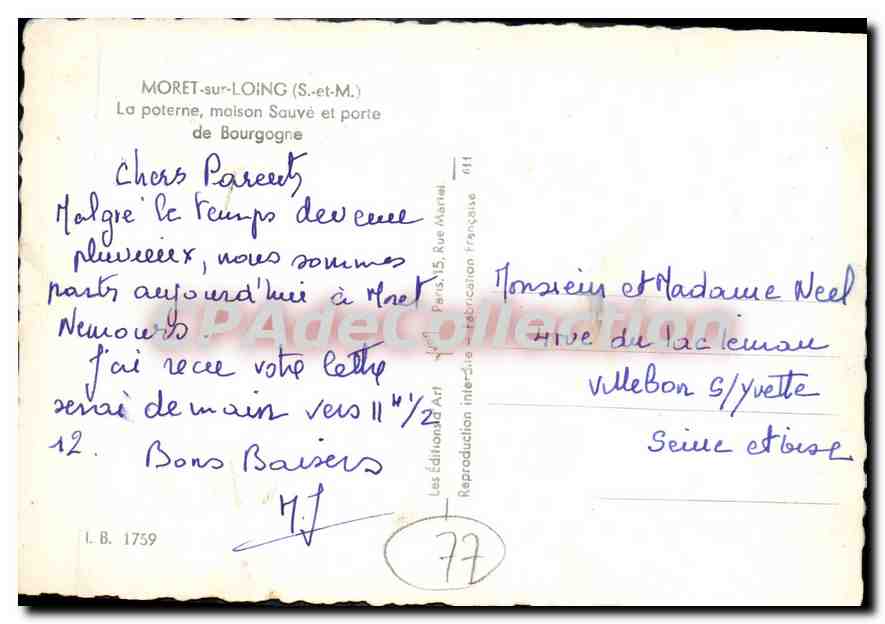 MORET-sur-LOING (S.-et-M.)
La poterne, maison Sauvé et porte
de Bourgogne
Chers Parents
Malgré le temps devenue
pluvieux, nous sommes
parts aujourd'hui à Moret
Nemours.
J'ai recue votre lettre
serai demain vers 11 H 1/2
12.
Bons Baisers
M.J
I. B. 1759
Les Éditions d'Art Paris, 15, Rue Martel
Reproduction interdite - Fabrication Française 611
Monsieur et Madame Neel
4 rue du
Villebon S/Yvette
Seine et oise
77
CPAdeCollection